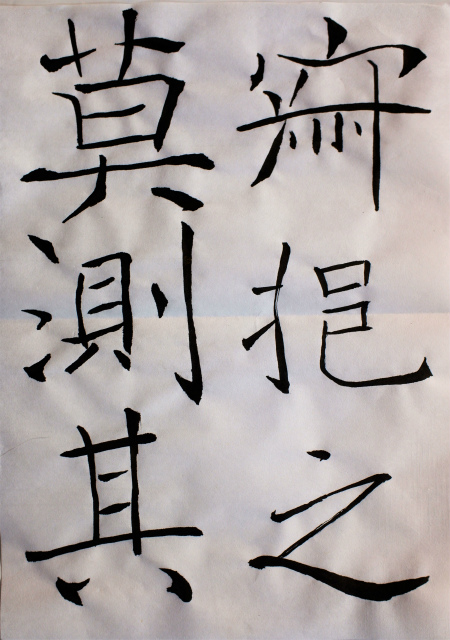 寂挹之
莫測其